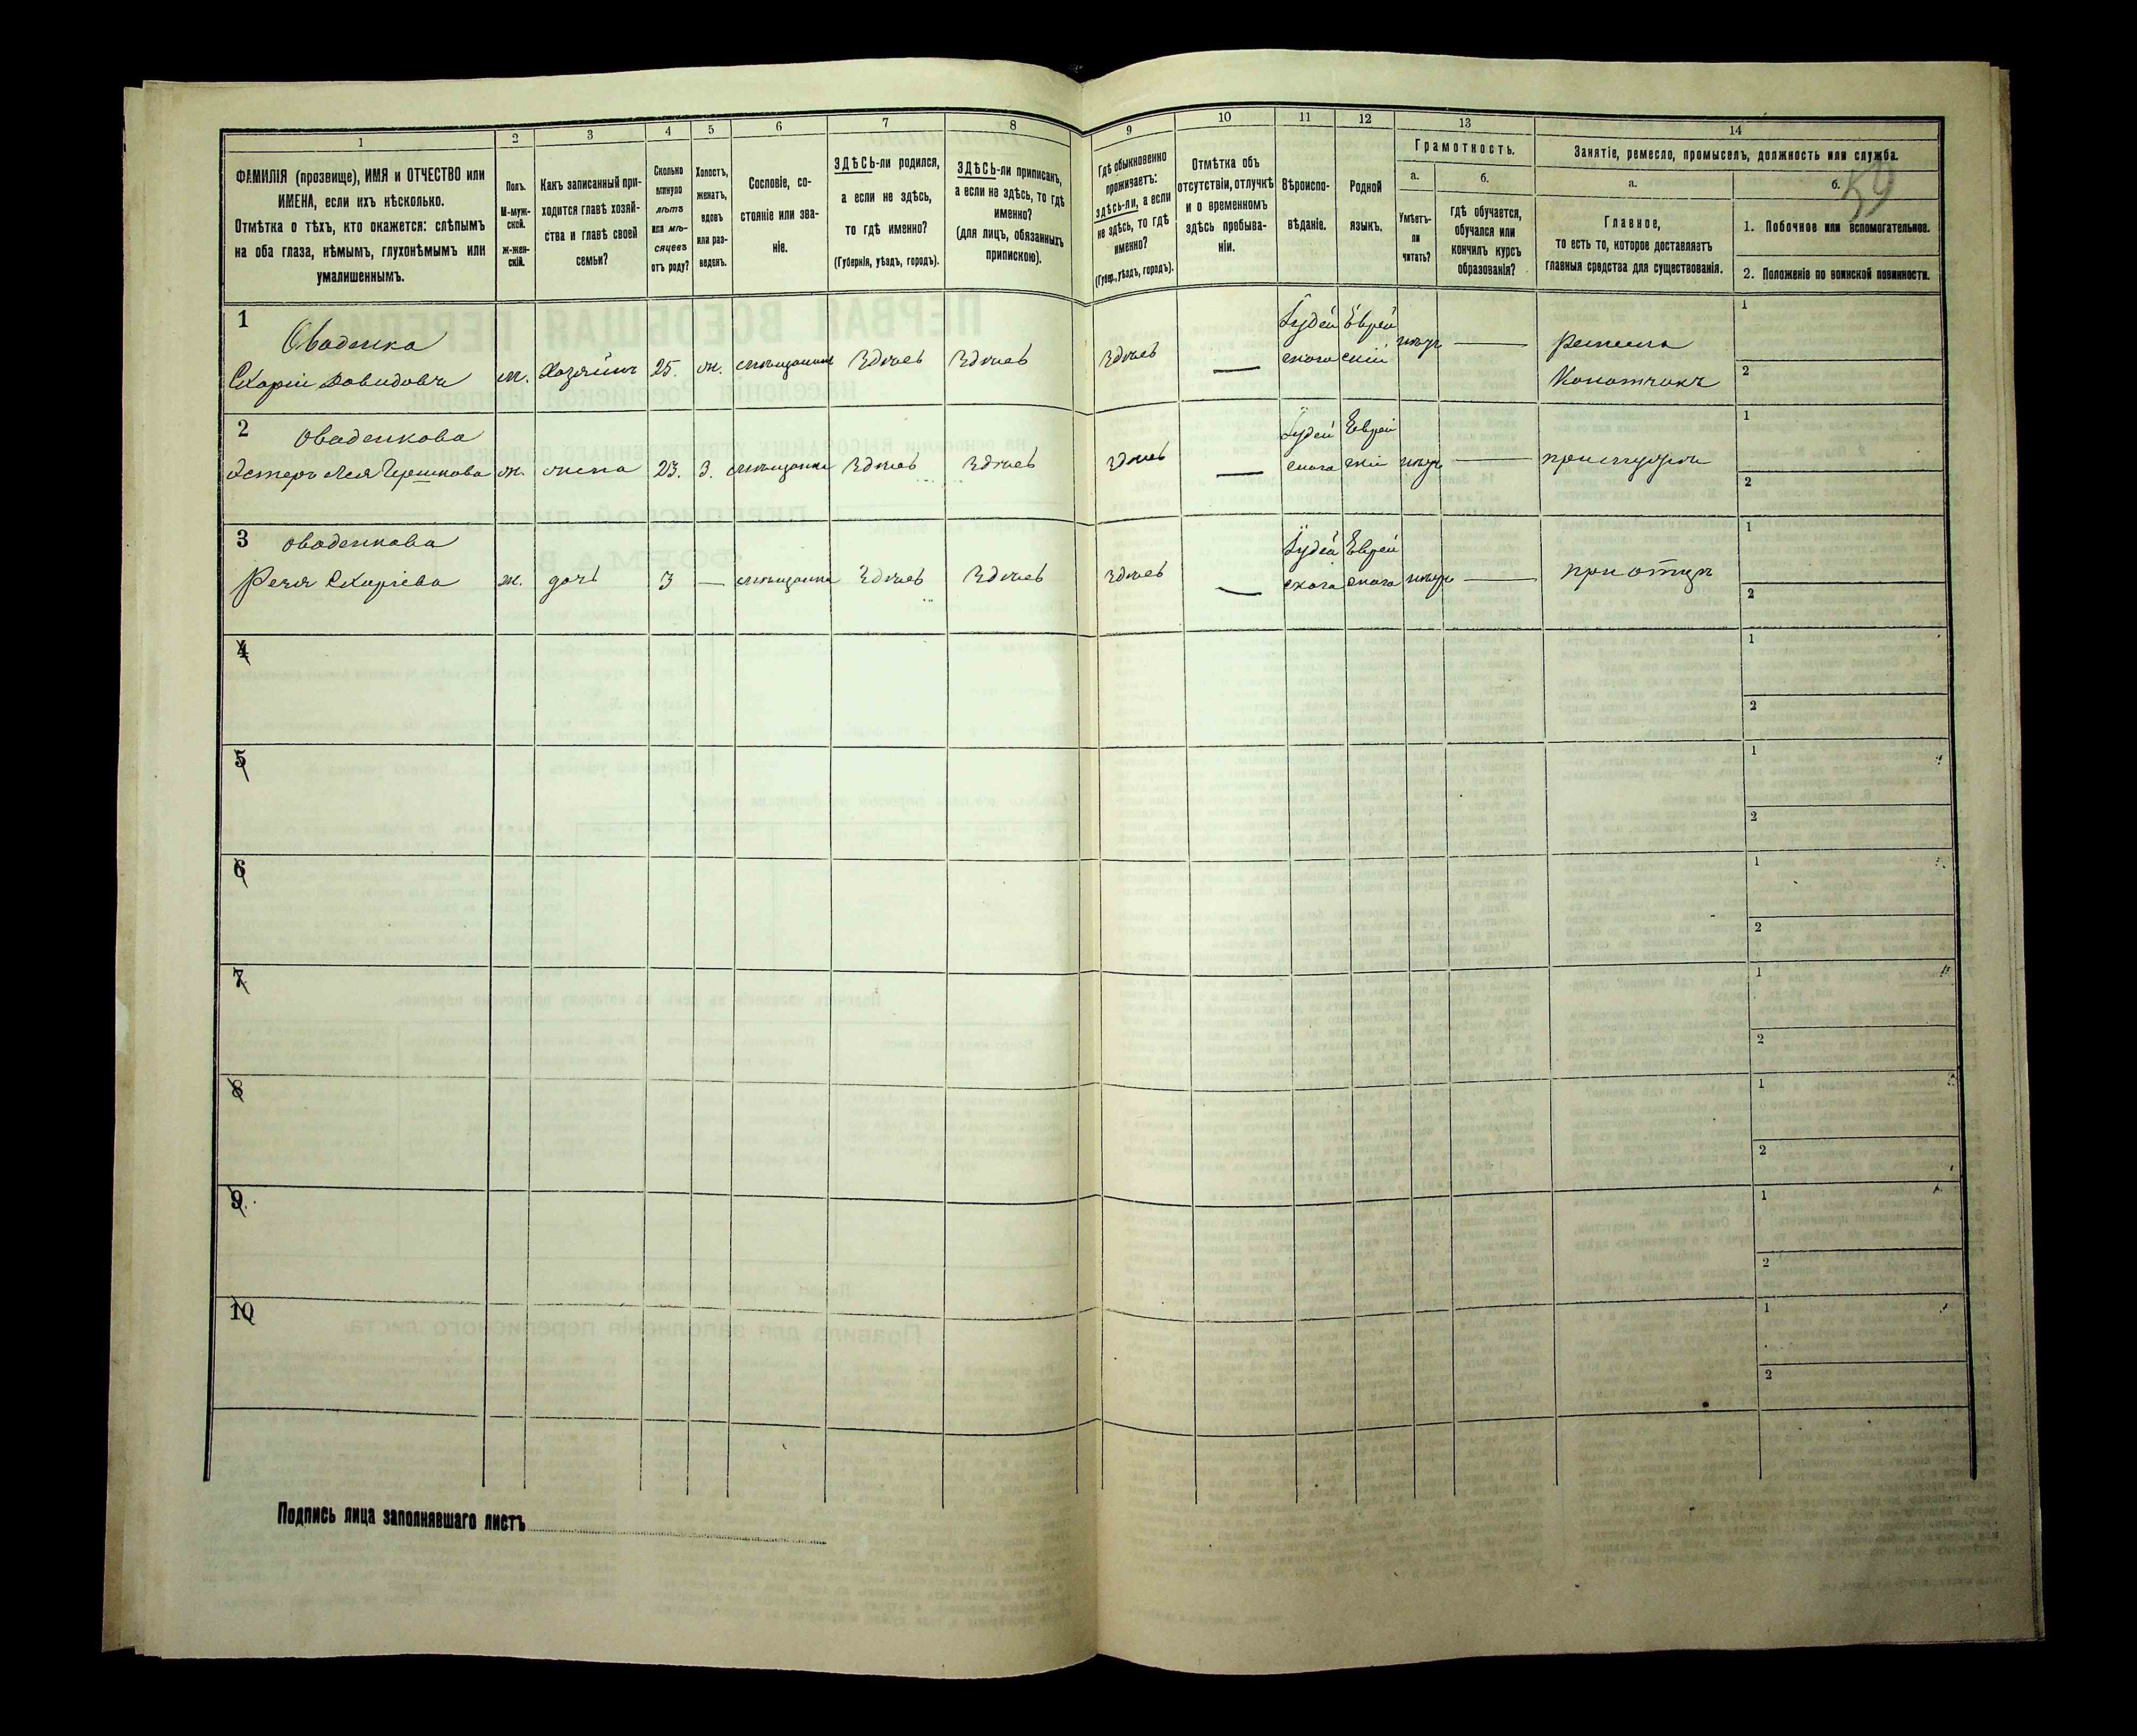 1
2
3
4
5
6
7
8
9
10
11
12
13
14
ФАМИЛІЯ (прозвище), ИМЯ и ОТЧЕСТВО или
ИМЕНА, если ихъ нѣсколько.
Отмѣтка о тѣхъ, кто окажется: слѣпымъ
на оба глаза, нѣмымъ, глухонѣмымъ или
умалишеннымъ.
Полъ.
М-муж-
ской.
ж-жен-
скій.
Какъ записанный при-
ходится главѣ хозяй-
ства и главѣ своей
семьи?
Сколько
минуло
лѣтъ
или мѣ-
сяцевъ
отъ роду?
Холостъ,
женатъ,
вдовъ
или раз-
веденъ.
Сословіе, со-
стояніе или зва-
ніе.
ЗДѢСЬ-ли родился,
а если не здѣсь,
то гдѣ именно?
(Губернія, уѣздъ, городъ).
ЗДѢСЬ-ли приписанъ,
а если не здѣсь, то гдѣ
именно?
(для лицъ, обязанныхъ
припискою).
Гдѣ обыкновенно
проживаетъ:
здѣсь-ли, а если
не здѣсь, то гдѣ
именно?
(Губер., уѣздъ, городъ).
Отмѣтка объ
отсутствіи, отлучкѣ
и о временномъ
здѣсь пребыва-
ніи.
Вѣроиспо-
вѣданіе.
Родной
языкъ.
Грамотность.
а.
Умѣетъ-
ли
читать?
б.
гдѣ обучается,
обучался или
кончилъ курсъ
образованія?
Занятіе, ремесло, промыселъ, должность или служба.
а.
Главное,
то есть то, которое доставляетъ
главныя средства для существованія.
б.
59
1. Побочное или вспомогательное.
2. Положеніе по воинской повинности.
1
Оваденка
Давидовъ м. Хозяинъ 25. ж. Здѣсь Здѣсь Здѣсь — —
Іудей
скаго
Еврей
скій
нѣтъ
1
2
2
Оваденкова
Эстеръ Лея ж. жена 23. З. мѣщанка Здѣсь Здѣсь Здѣсь — —
Іудей
скаго
Еврей
скій
нѣтъ
при мужѣ
1
2
3
Оваденкова
ж. дочь 3 — мѣщанка Здѣсь Здѣсь Здѣсь — —
Іудей
скаго
Еврей
скаго
нѣтъ
при отцѣ
1
2
4
1
2
5
1
2
6
1
2
7
1
2
8
1
2
9
1
2
10
1
2
Подпись лица заполнявшаго листъ